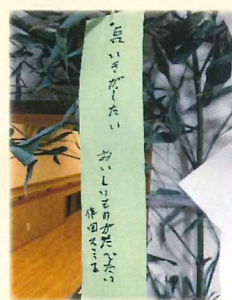 長いきがしたい
おいしいものがたべたい
作田スミ子